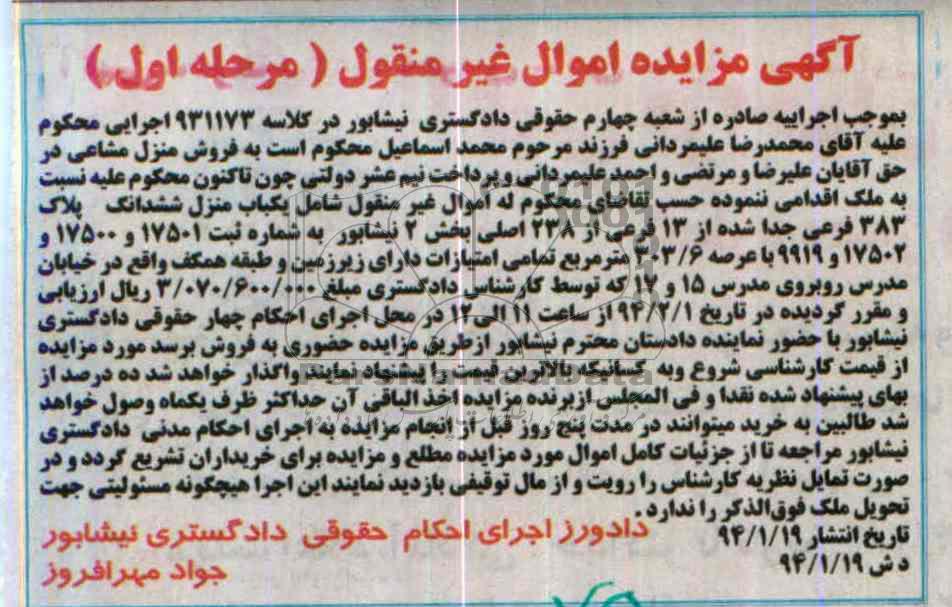 آگهی مزایده اموال غیر منقول ( مرحله اول )
بموجب اجراییه صادره از شعبه چهارم حقوقی دادگستری نیشابور در کلاسه ۹۳۱۱۷۳ اجرایی محکوم
علیه آقای محمدرضا علیمردانی فرزند مرحوم محمد اسماعیل محکوم است به فروش منزل مشاعی در
حق آقایان علیرضا و مرتضی و احمد علیمردانی و پرداخت نیم عشر دولتی چون تاکنون محکوم علیه نسبت
به ملک اقدامی ننموده حسب تقاضای محکوم له اموال غیر منقول شامل یکباب منزل ششدانگ پلاک
۳۸۳ فرعی جدا شده از ۱۳ فرعی از ۲۳۸ اصلی بخش ۲ نیشابور به شماره ثبت ۱۷۵۰۱ و ۱۷۵۰۰ و
۱۷۵۰۲ و ۹۹۱۹ با عرصه ۳۰۳/۶ مترمربع تمامی امتیازات دارای زیرزمین و طبقه همکف واقع در خیابان
مدرس روبروی مدرس ۱۵ و ۱۷ که توسط کارشناس دادگستری مبلغ ۳/۰۷۰/۶۰۰/۰۰۰ ریال ارزیابی
و مقرر گردیده در تاریخ ۹۴/۲/۱ از ساعت ۱۱ الی ۱۲ در محل اجرای احکام چهار حقوقی دادگستری
نیشابور با حضور نماینده دادستان محترم نیشابور ازطریق مزایده حضوری به فروش برسد مورد مزایده
از قیمت کارشناسی شروع وبه کسانیکه بالاترین قیمت را پیشنهاد نمایند واگذار خواهد شد ده درصد از
بهای پیشنهاد شده نقدا و فی المجلس ازبرنده مزایده اخذ الباقی آن حداکثر ظرف یکماه وصول خواهد
شد طالبین به خرید میتوانند در مدت پنج روز قبل از انجام مزایده به اجرای احکام مدنی دادگستری
نیشابور مراجعه تا از جزئیات کامل اموال مورد مزایده مطلع و مزایده برای خریداران تشریع گردد و در
صورت تمایل نظریه کارشناس را رویت و از مال توقیفی بازدید نمایند این اجرا هیچگونه مسئولیتی جهت
تحویل ملک فوق‌الذکر را ندارد .
دادورز اجرای احکام حقوقی دادگستری نیشابور
جواد مهرافروز
تاریخ انتشار ۹۴/۱/۱۹
د ش ۹۴/۱/۱۹
ParsNamadData